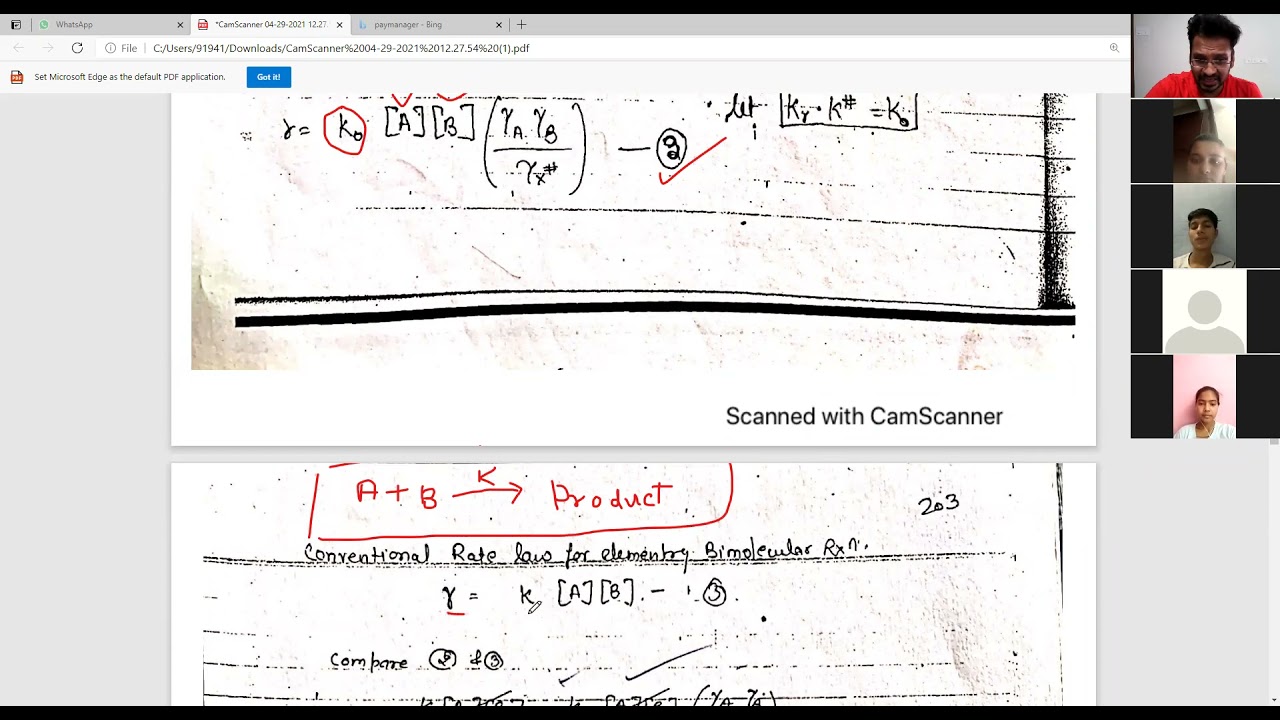 WhatsApp
*CamScanner 04-29-2021 12.27.
paymanager - Bing
File C:/Users/91941/Downloads/CamScanner%2004-29-2021%2012.27.54%20(1).pdf
Set Microsoft Edge as the default PDF application. Got it!
r = k₀ [A][B] (γA γB / γx#) — ② let Kr · K# = K₀
Scanned with CamScanner
A + B —K→ Product
203
Conventional Rate law for elementry Bimolecular Rxn.
r = k [A][B] — ③.
Compare ② & ③